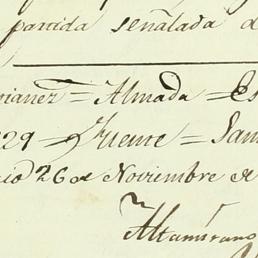 partida señalada d
ianez = Almada = Es
29 = Fuente = San
io 26 de Noviembre de
Altamirano